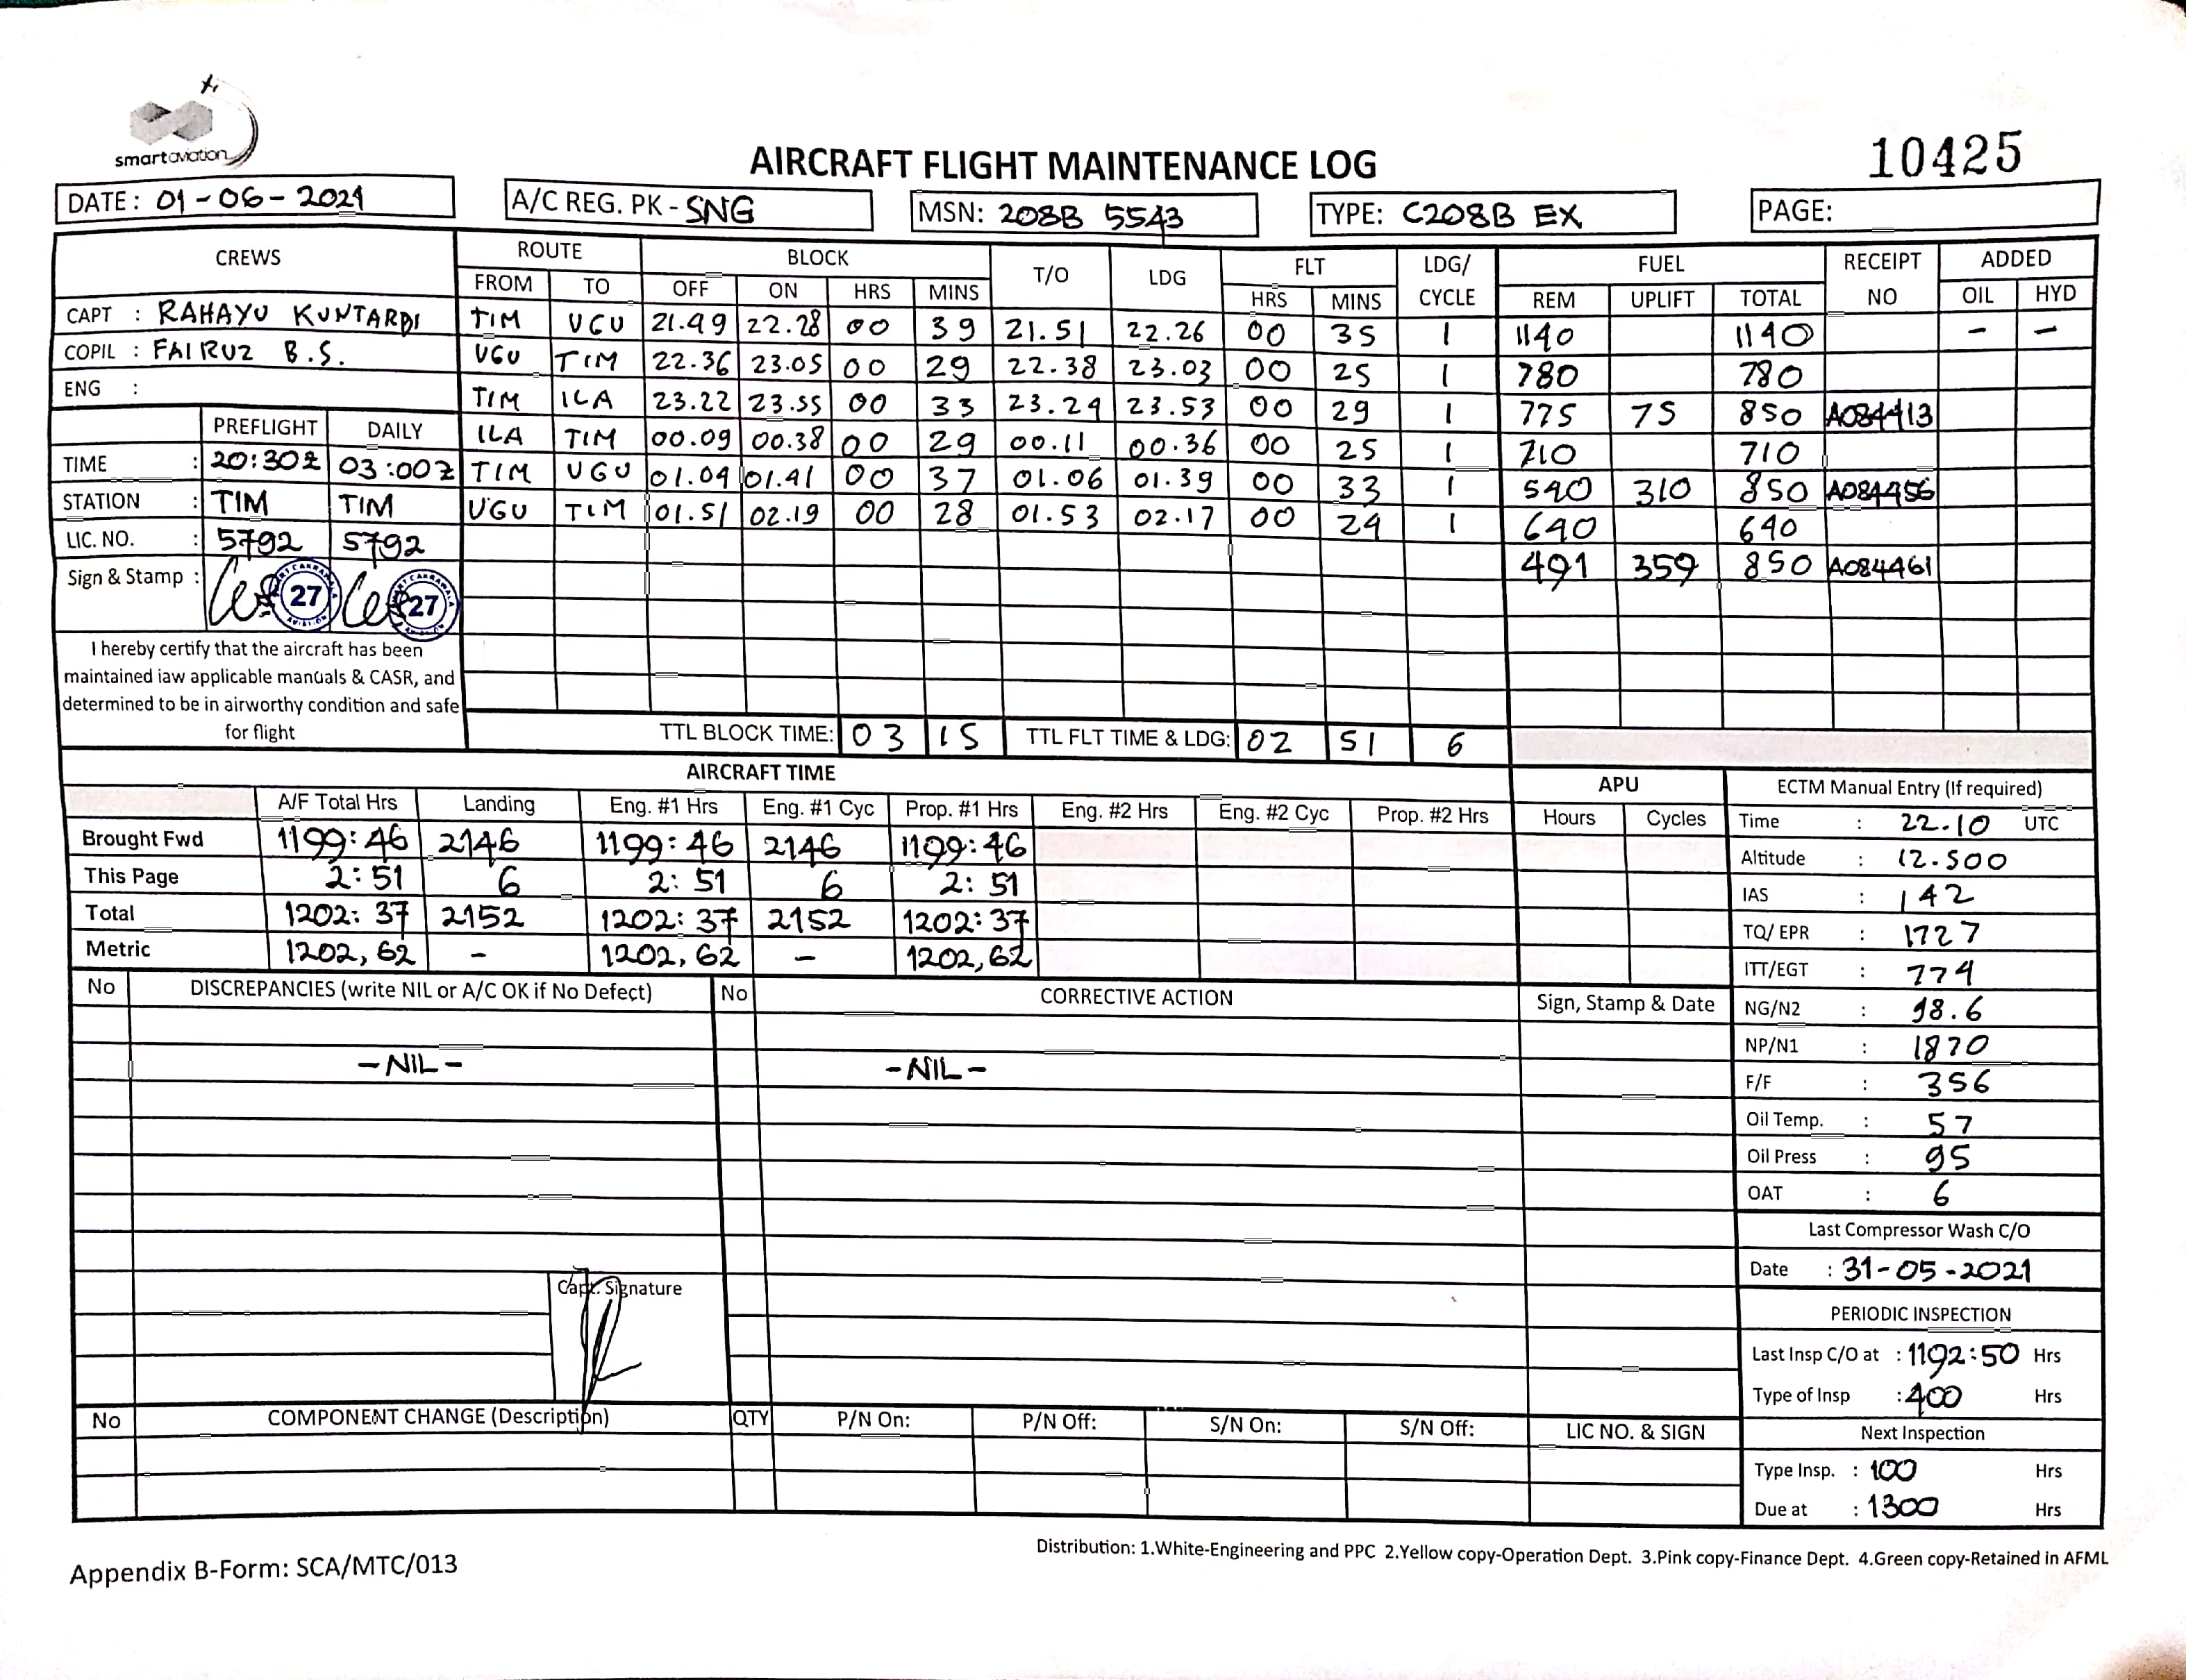 smart aviation
AIRCRAFT FLIGHT MAINTENANCE LOG
10425
DATE : 01-06-2021 A/C REG. PK - SNG MSN: 208B 5543 TYPE: C208B EX PAGE:
CREWS ROUTE BLOCK T/O LDG FLT LDG/ CYCLE FUEL RECEIPT NO ADDED
FROM TO OFF ON HRS MINS HRS MINS REM UPLIFT TOTAL OIL HYD
CAPT : RAHAYU KUNTARDI TIM UGU 21.49 22.28 00 39 21.51 22.26 00 35 1 1140 1140 - -
COPIL : FAIRUZ B.S. UGU TIM 22.36 23.05 00 29 22.38 23.03 00 25 1 780 780
ENG : TIM ILA 23.22 23.55 00 33 23.24 23.53 00 29 1 775 75 850 A084413
PREFLIGHT DAILY ILA TIM 00.09 00.38 00 29 00.11 00.36 00 25 1 710 710
TIME : 20:30z 03:00z TIM UGU 01.04 01.41 00 37 01.06 01.39 00 33 1 540 310 850 A084456
STATION : TIM TIM UGU TIM 01.51 02.19 00 28 01.53 02.17 00 24 1 640 640
LIC. NO. : 5792 5792
491 359 850 A084461
Sign & Stamp : 27 27
I hereby certify that the aircraft has been
maintained iaw applicable manuals & CASR, and
determined to be in airworthy condition and safe
for flight
TTL BLOCK TIME: 03 15 TTL FLT TIME & LDG: 02 51 6
AIRCRAFT TIME APU ECTM Manual Entry (If required)
A/F Total Hrs Landing Eng. #1 Hrs Eng. #1 Cyc Prop. #1 Hrs Eng. #2 Hrs Eng. #2 Cyc Prop. #2 Hrs Hours Cycles Time : 22.10 UTC
Brought Fwd 1199:46 2146 1199:46 2146 1199:46 Altitude : 12.500
This Page 2:51 6 2:51 6 2:51 IAS : 142
Total 1202:37 2152 1202:37 2152 1202:37 TQ/ EPR : 1727
Metric 1202,62 - 1202,62 - 1202,62 ITT/EGT : 774
No DISCREPANCIES (write NIL or A/C OK if No Defect) No CORRECTIVE ACTION Sign, Stamp & Date NG/N2 : 98.6
- NIL - - NIL - NP/N1 : 1870
F/F : 356
Oil Temp. : 57
Oil Press : 95
OAT : 6
Last Compressor Wash C/O
Date : 31-05-2021
Capt. Signature
PERIODIC INSPECTION
Last Insp C/O at : 1192:50 Hrs
Type of Insp : 400 Hrs
No COMPONENT CHANGE (Description) QTY P/N On: P/N Off: S/N On: S/N Off: LIC NO. & SIGN Next Inspection
Type Insp. : 100 Hrs
Due at : 1300 Hrs
Appendix B-Form: SCA/MTC/013
Distribution: 1.White-Engineering and PPC 2.Yellow copy-Operation Dept. 3.Pink copy-Finance Dept. 4.Green copy-Retained in AFML